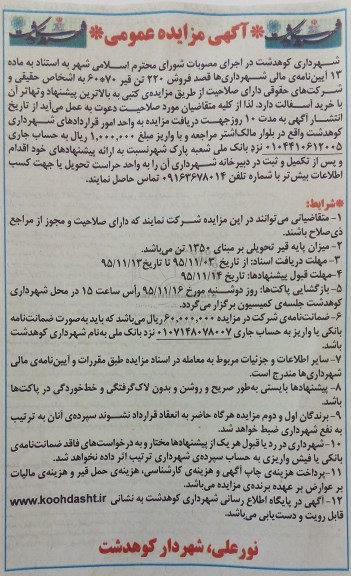 *آگهی مزایده عمومی*
شهرداری کوهدشت در اجرای مصوبات شورای محترم اسلامی شهر به استناد به ماده
۱۳ آیین‌نامه‌ی مالی شهرداری‌ها قصد فروش ۲۲۰ تن قیر ۷۰=۶۰ به اشخاص حقیقی و
شرکت‌های حقوقی دارای صلاحیت از طریق مزایده‌ی کتبی به بالاترین پیشنهاد وتهاتر آن
با خرید آسفالت دارد. لذا از کلیه متقاضیان مورد صلاحیت دعوت به عمل می‌آید از تاریخ
انتشار آگهی به مدت ۱۰ روزجهت دریافت مزایده به واحد امور قراردادهای شهرداری
کوهدشت واقع در بلوار مالک‌اشتر مراجعه و با واریز مبلغ ۱,۰۰۰,۰۰۰ ریال به حساب جاری
۰۱۰۴۴۱۰۶۱۲۰۰۵ نزد بانک ملی شعبه پارک شهرنسبت به ارائه پیشنهادهای خود اقدام
و پس از تکمیل و ثبت در دبیرخانه شهرداری آن را به واحد حراست تحویل یا جهت کسب
اطلاعات بیش‌تر با شماره تلفن ۰۹۱۶۳۶۷۸۰۱۴ تماس حاصل نمایند.
*شرایط:
۱- متقاضیانی می‌توانند در این مزایده شرکت نمایند که دارای صلاحیت و مجوز از مراجع
ذی‌صلاح باشند.
۲- میزان پایه قیر تحویلی بر مبنای ۱۳۵۰ تن می‌باشد.
۳- مهلت دریافت اسناد: از تاریخ ۹۵/۱۱/۰۳ تا تاریخ۹۵/۱۱/۱۳
۴-مهلت قبول پیشنهادها: تاریخ ۹۵/۱۱/۱۴
۵- بازگشایی پاکت‌ها: روز دوشنبه مورخ ۹۵/۱۱/۱۶ رأس ساعت ۱۵ در محل شهرداری
کوهدشت جلسه‌ی کمیسیون برگزار می‌گردد.
۶- ضمانت‌نامه‌ی شرکت در مزایده ۶۰,۰۰۰,۰۰۰ریال می‌باشد که باید به‌صورت ضمانت‌نامه
بانکی یا واریز به حساب جاری ۰۱۰۷۱۴۸۰۷۸۰۰۷ نزد بانک ملی به‌نام شهرداری کوهدشت
باشد.
۷- سایر اطلاعات و جزئیات مربوط به معامله در اسناد مزایده طبق مقررات و آیین‌نامه‌ی مالی
شهرداری‌ها مندرج است.
۸- پیشنهادها بایستی به‌طور صریح و روشن و بدون لاک‌گرفتگی و خط‌خوردگی در پاکت‌ها
باشد.
۹- برندگان اول و دوم مزایده هرگاه حاضر به انعقاد قرارداد نشوند سپرده‌ی آنان به ترتیب
به نفع شهرداری ضبط خواهد شد.
۱۰- شهرداری در رد یا قبول هریک از پیشنهادها مختار و به درخواست‌های فاقد ضمانت‌نامه‌ی
بانکی یا فیش واریزی به حساب سپرده‌ی شهرداری ترتیب اثر داده نخواهد شد.
۱۱-پرداخت هزینه‌ی چاپ آگهی و هزینه‌ی کارشناسی، هزینه‌ی حمل قیر و هزینه‌ی مالیات
بر عوارض بر عهده برنده‌ی مزایده می‌باشد.
۱۲-آگهی در پایگاه اطلاع رسانی شهرداری کوهدشت به نشانی www.koohdasht.ir
قابل رویت و دست‌یابی می‌باشد.
نورعلی، شهردار کوهدشت